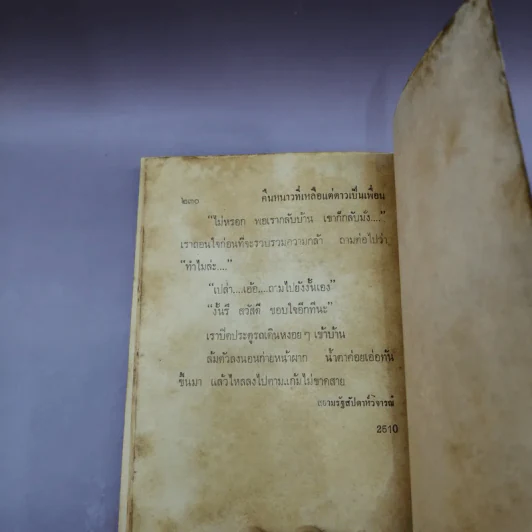 ๒๓๐ คืนหนาวที่เหลือแต่ดาวเป็นเพื่อน
"ไม่หรอก พอเรากลับบ้าน เขาก็กลับมั่ง...."
เราถอนใจก่อนที่จะรวบรวมความกล้า ถามต่อไปว่า
"ทำไมล่ะ...."
"เปล่า....เอ้อ....ถามไปยังงั้นเอง"
"งั้นรึ สวัสดี ขอบใจอีกทีนะ"
เราปิดประตูรถเดินหงอยๆ เข้าบ้าน
ล้มตัวลงนอนก่ายหน้าผาก น้ำตาค่อยเอ่อท้น
ขึ้นมา แล้วไหลลงไปตามแก้มไม่ขาดสาย
สยามรัฐสัปดาห์วิจารณ์
2510